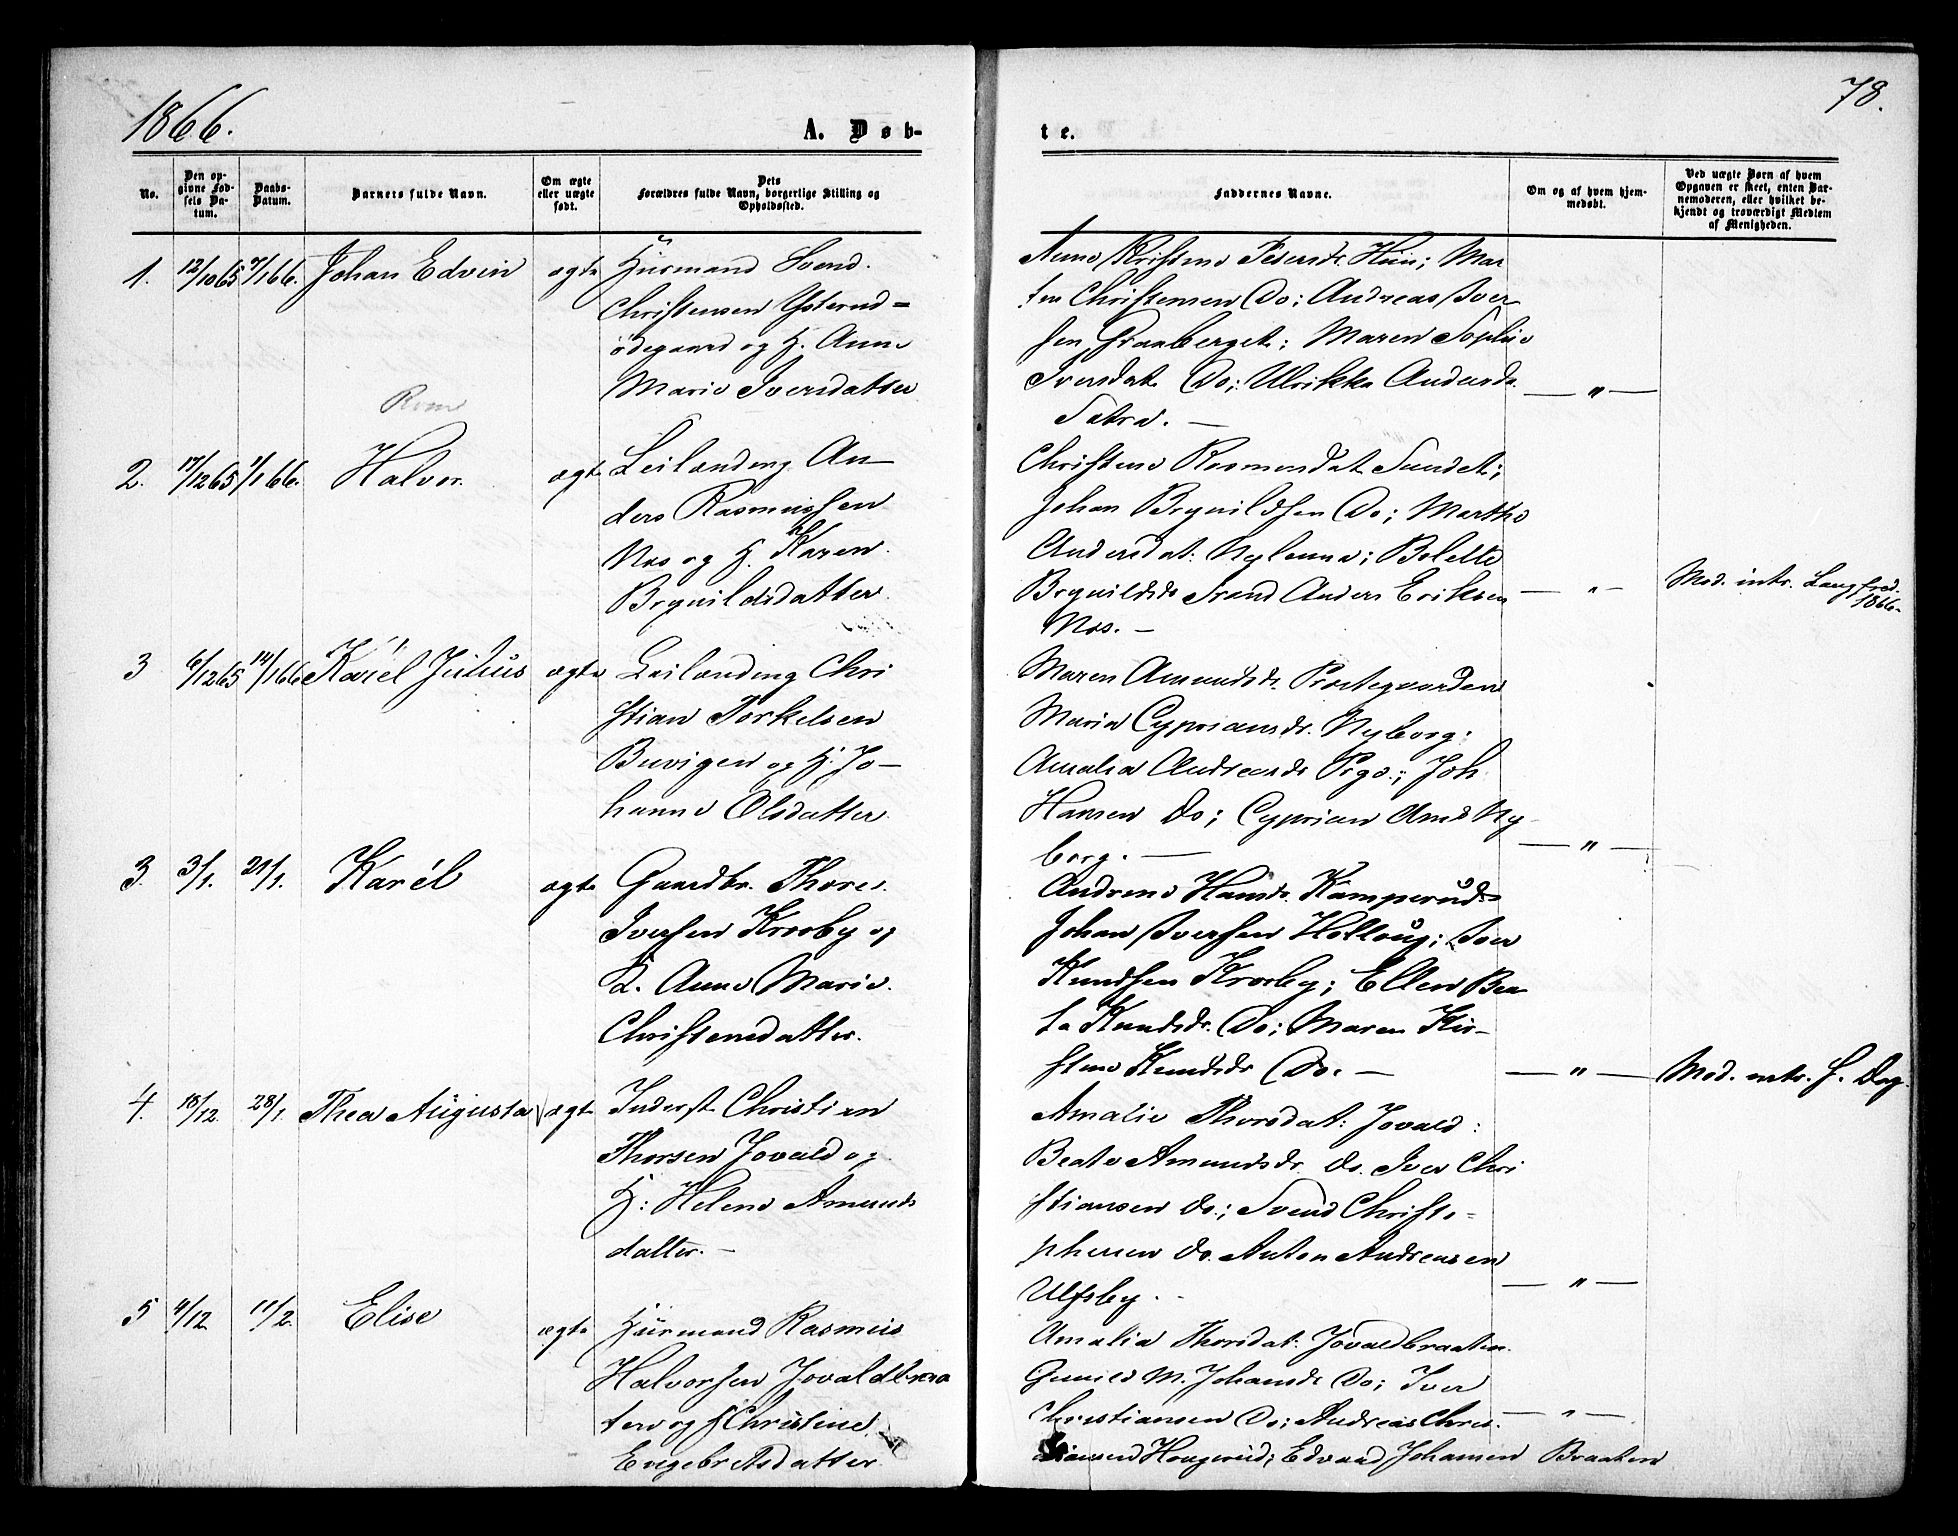 1866.
78.
A. Døb-
te.
No.
Den op-
givne Fød-
sels Da-
tum.
Daabs-
Datum.
Barnets fulde Navn.
Om ægte
eller uægte
født.
Dets
Forældres fulde Navn, borgerlige Stilling og
Opholdssted.
Faddernes Navne.
Om og af hvem hjem-
medøbt.
Ved uægte Børn af hvem
Opgaven er skeet, enten Bar-
nemoderen, eller hvilket be-
kjendt og troværdigt Medlem
af Menigheden.
1. 12/10 65 7/1 66. Johan Edvin ægte Huusmand Svend
Christensen Ysterud=
ødegaard og H. Anne
Marie Iversdatter
Anne Kristine Pedersdr. Huin; Mar
ten Christensen Do; Andreas Iver
sen Graaberget; Maren Sophie
Iversdat. Do; Ulrikke Andersdr.
Sætra. —
— „ —
2. 17/12 65 1/1 66. Halvor. ægte Leilænding An-
ders Rasmussen
Nos og H. Karen
Brynildsdatter.
Christine Rasmusdat Sundet;
Johan Brynildsen Do; Marthe
Andersdat: Nylenna; Bolette
Brynildsdr. Anders Eriksen
Nos. —
— „ —
Mod. intr. Langfred.
1866.
3 6/12 65 14/1 66 Karel Julius ægte Leilænding Chri
stian Torkelsen
Buvigen og H. Jo-
hanne Olsdatter
Maren Amundsdr. Prestegaarden
Maria Cypriansdr. Nyborg;
Amalia Andreasdr. Prgd.; Joh.
Hansen Do; Cyprian Amds Ny
borg. —
— „ —
3. 3/1. 21/1. Karel ægte Gaardbr. Thore
Iversen Krosby og
K. Anne Marie
Christensdatter.
Andrine Hansdr. Kamperud
Johan Iversen Holloug; Iver
Knudsen Krosby; Ellen Bea
te Knudsdr. Do; Maren Kir-
stine Knudsdr Do. —
— „ —
Mod. intr. s. Dag.
4. 18/12. 28/1. Thea Augusta ægte Inderst Christian
Thorsen Jovald og
H: Helene Amunds
datter. —
Amalie Thorsdat: Jovald:
Beate Amundsdr. Do. Iver Chri
stiansen Do.; Svend Christo=
phersen Do. Anton Andreasen
Ulfsby. -
— „ —
5 4/12 11/2. Elise ægte Huusmand Rasmus
Halvorsen Jovaldbraa
ten og H Christine
Engebretsdatter
Amalia Thorsdat: Jovaldbraaten
Gunild M. Johansdr Do; Iver
Christiansen Do; Andreas Chri-
stiansen Hougerud; Edvard Johansen Braaten
— „ —